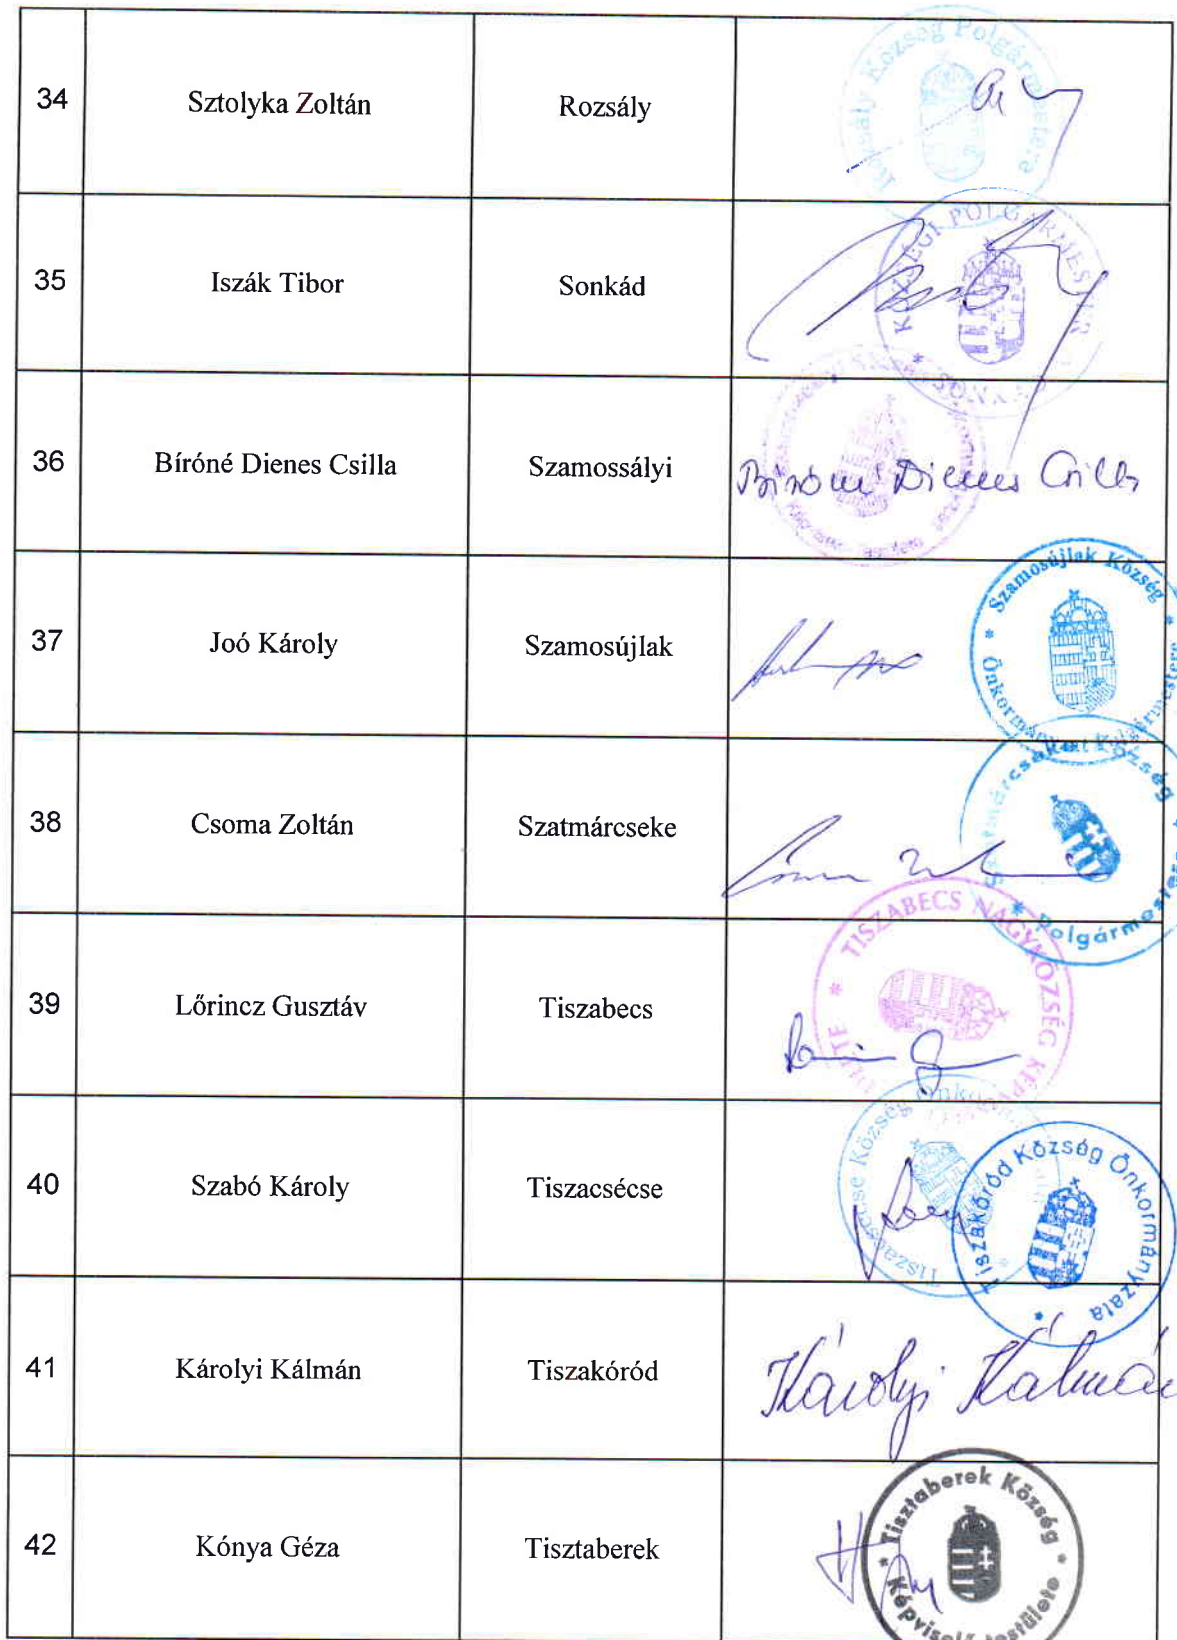 34 Sztolyka Zoltán Rozsály
Rozsály Község Polgármestere
35 Iszák Tibor Sonkád
KÖZSÉGI POLGÁRMESTER * SONKÁD
36 Bíróné Dienes Csilla Szamossályi
Bíróné Dienes Csilla
37 Joó Károly Szamosújlak
* Szamosújlak Község * Önkormányzat Polgármestere
38 Csoma Zoltán Szatmárcseke
Szatmárcseke Község * Polgármestere
39 Lőrincz Gusztáv Tiszabecs
* TISZABECS NAGYKÖZSÉG
40 Szabó Károly Tiszacsécse
Tiszacsécse Község
Tiszakóród Község Önkormányzata *
41 Károlyi Kálmán Tiszakóród
Károlyi Kálmán
42 Kónya Géza Tisztaberek
* Tisztaberek Község * Képviselő-testülete